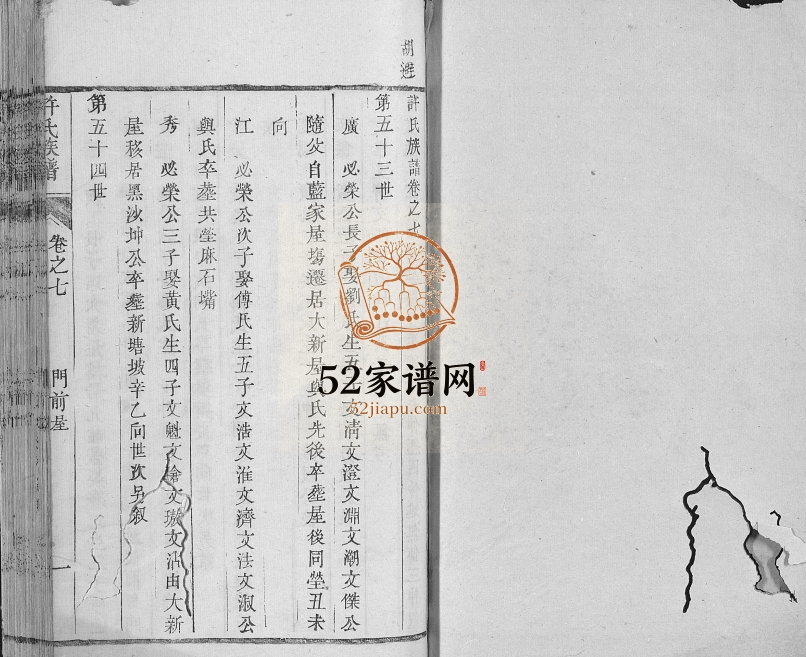 胡遊
許氏族譜卷之七
第五十三世
廣 必榮公長子娶劉氏生五子文清文澄文淵文潮文傑公
隨父自藍家屋塲遷居大新屋與氏先後卒塟屋後同塋丑未
向
江 必榮公次子娶傅氏生五子文浩文淮文濟文法文淑公
與氏卒塟共塋麻石嘴
秀 必榮公三子娶黃氏生四子文魁文 文璈文 由大新
屋移居黑沙坤公卒塟新塘坡辛乙向世次另敘
第五十四世
許氏族譜
卷之七
門前屋
一
52家谱网
52jiapu.com